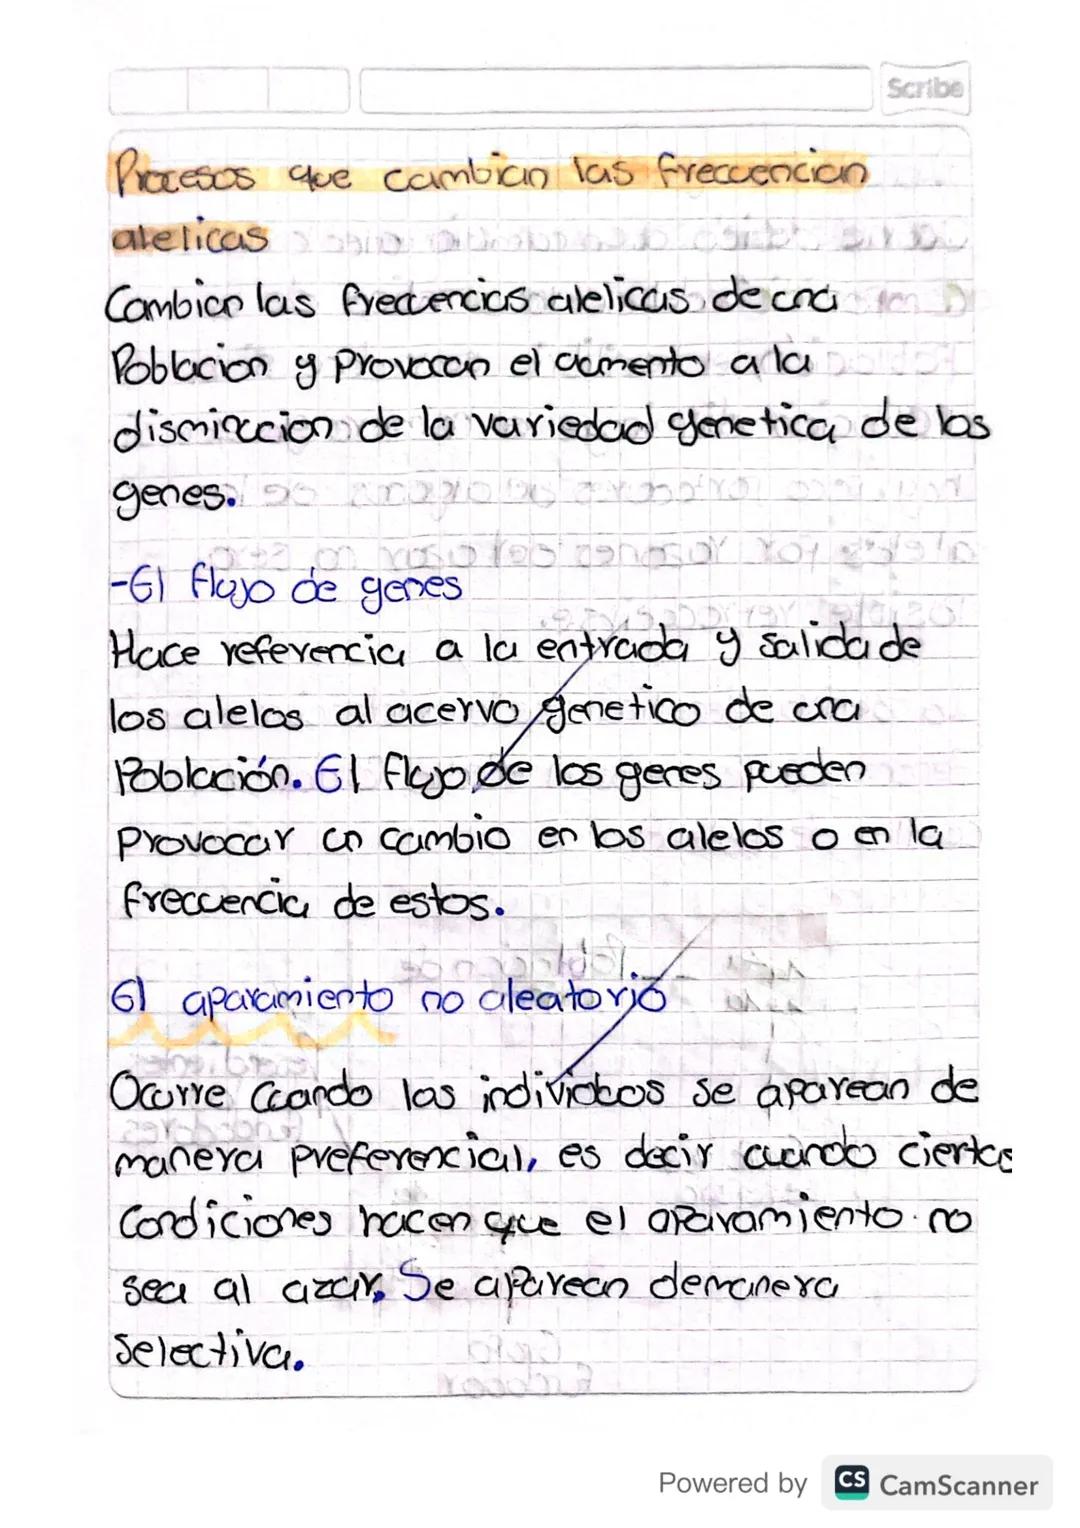 Scribe
Procesos que cambian las frecuencian
alelicas
Cambian las frecuencias alelicas de una
Poblacion y Provocan el aumento a la
disminucion de la variedad genetica de los
genes.
-El flujo de genes
Hace referencia a la entrada y salida de
los alelos al acervo genetico de una
Población. El flujo de los genes pueden
Provocar un cambio en los alelos o en la
frecuencia de estos.
El aparamiento no aleatorio
Ocurre cuando las individuos se aparean de
manera preferencial, es decir cuando ciertas
Condiciones hacen que el aparamiento no
sea al azar, Se aparean de manera
selectiva.
Powered by CS CamScanner